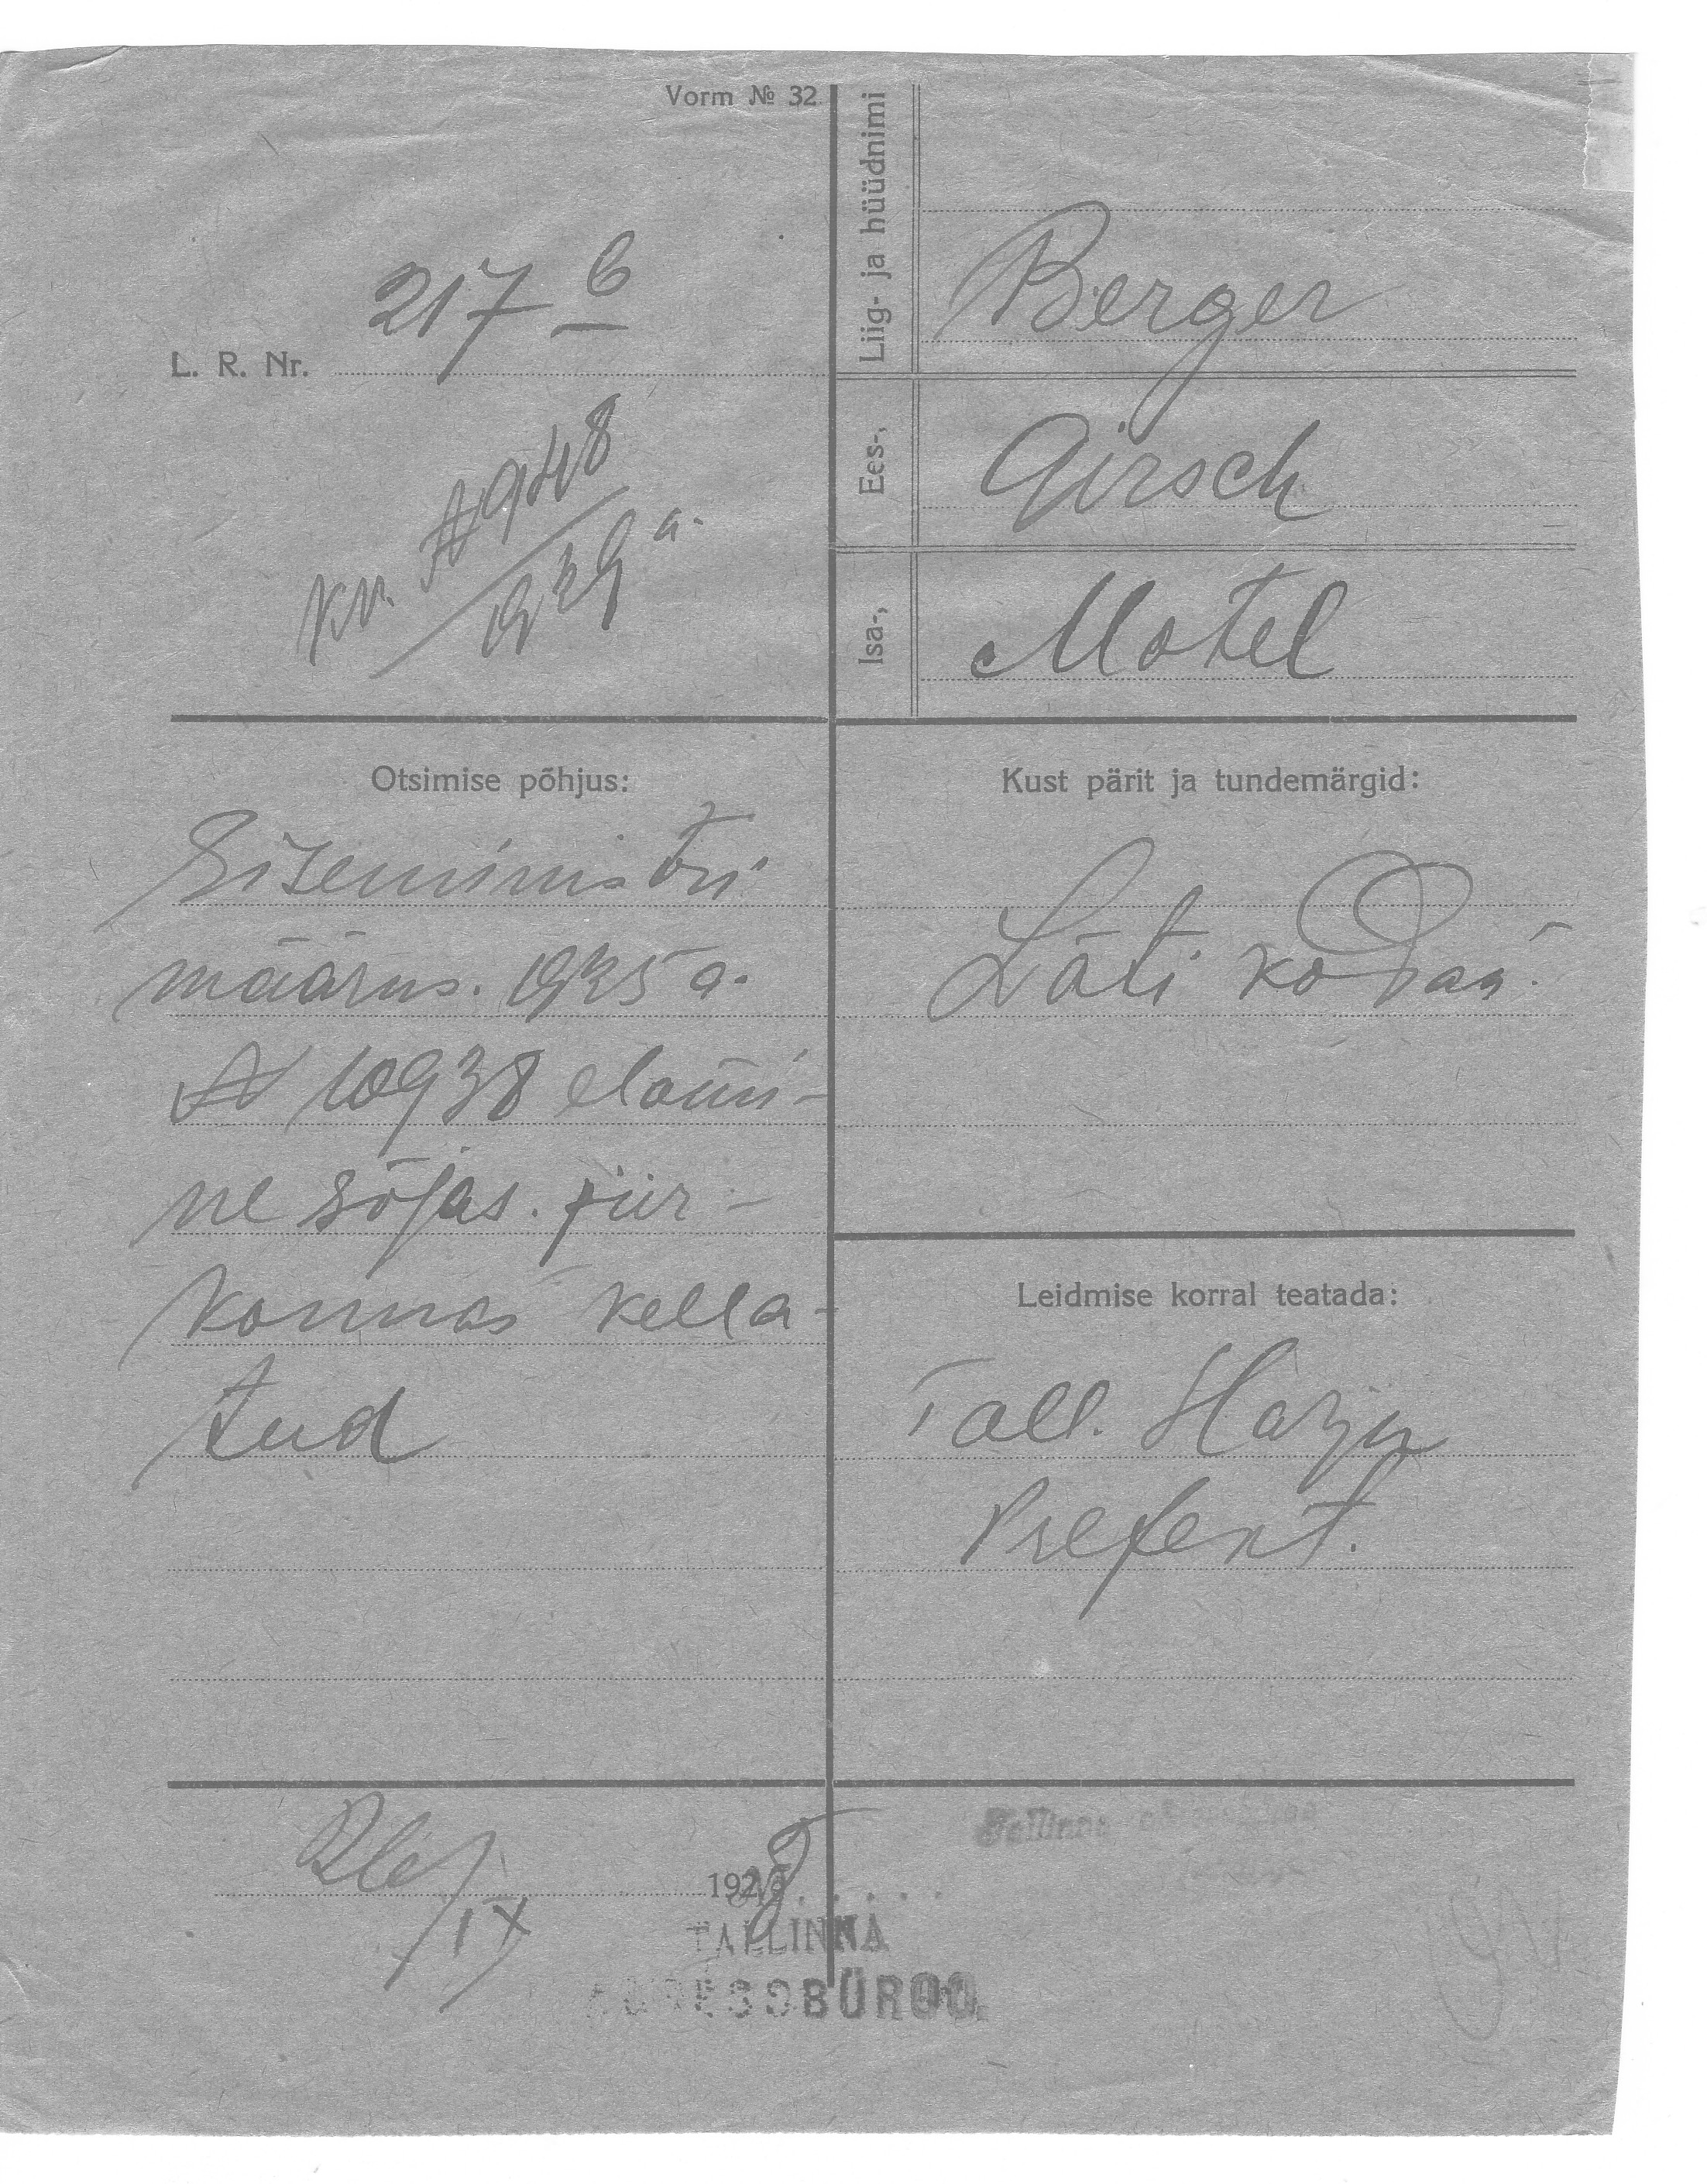 Vorm № 32
L. R. Nr. 217 b
kv. № 948
Liig- ja hüüdnimi
Berger
Ees-,
Girsch
Isa-,
Motel
Otsimise põhjus:
Siseministri
määrus. 1925 a.
№ 10938 elami-
ne sõjas. piir-
konnas keela-
tud
Kust pärit ja tundemärgid:
Läti kodan.
Leidmise korral teatada:
Tall. Harju
Prefekt.
IX 192
TALLINNA
ADRESSBÜROO.